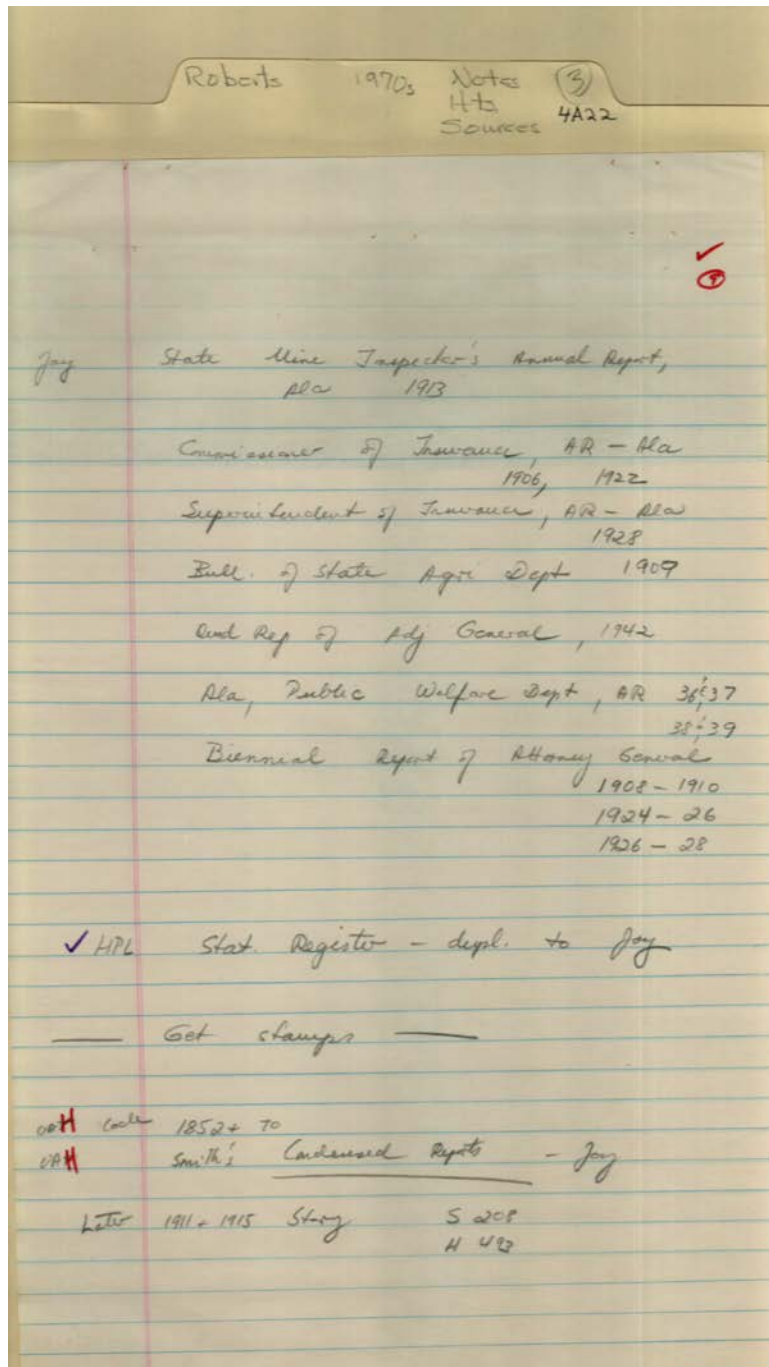 Roberts 1970s Notes 3
Hts 4A22
Sources
✓
Jay State Mine Inspector's Annual Report,
Ala 1913
Commissioner of Insurance, AR — Ala
1906, 1922
Superintendent of Insurance, AR — Ala
1928
Bull. of State Agri Dept 1909
Qud Rep of Adj General, 1942
Ala, Public Welfare Dept, AR 36&37
38&39
Biennial Report of Attorney General
1908 — 1910
1924 — 26
1926 — 28
✓ HPL Stat. Register — dupl. to Jay
— Get stamps —
UAH Code 1852 + 70
UAH Smith's Condensed Repts — Jay
Later 1911 + 1915 S 208
H 493